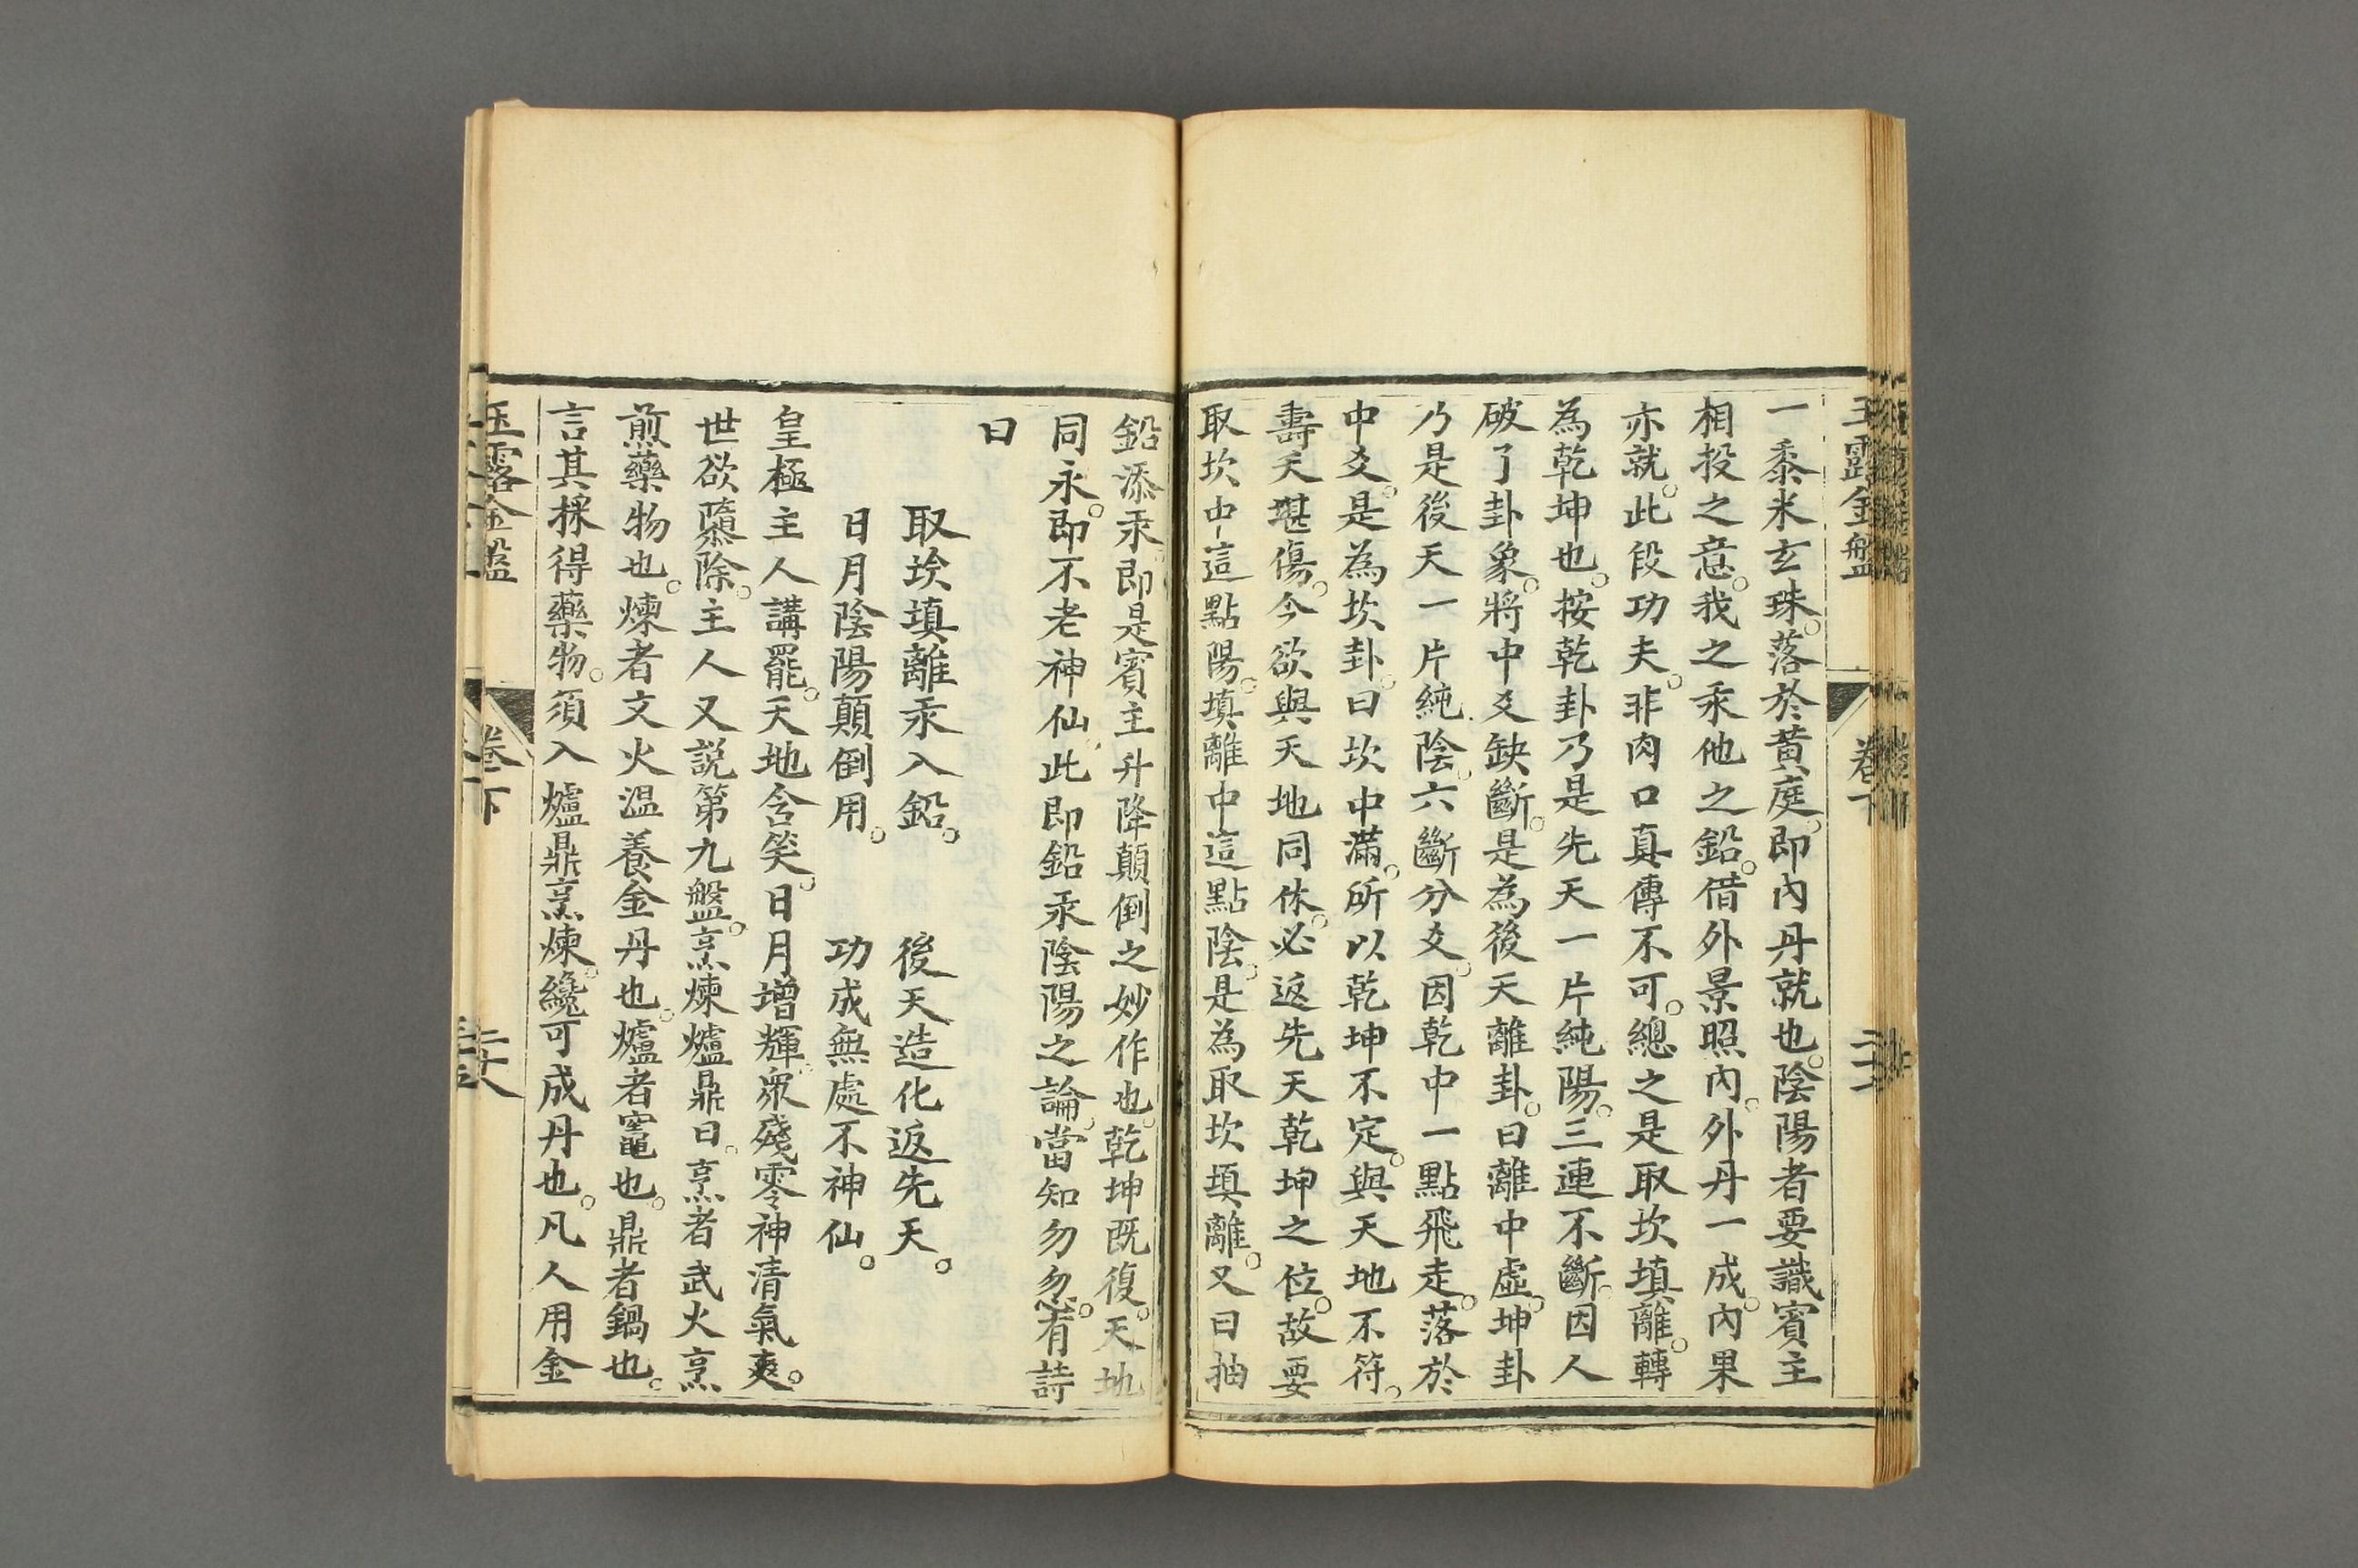 玉露金盤 卷下
一黍米玄珠。落於黃庭。即內丹就也。陰陽者要識賓主
相投之意。我之汞他之鉛。借外景照內。外丹一成。內果
亦就。此段功夫。非肉口真傳不可。總之是取坎填離。轉
為乾坤也。按乾卦乃是先天一片純陽。三連不斷。因人
破了卦象。將中爻缺斷。是為後天離卦。曰離中虛。坤卦
乃是後天一片純陰。六斷分爻。因乾中一點飛走。落於
中爻。是為坎卦。曰坎中滿。所以乾坤不定。與天地不符。
壽夭堪傷。今欲與天地同休。必返先天乾坤之位。故要
取坎中這點陽。填離中這點陰。是為取坎填離。又曰抽
鉛添汞。即是賓主升降顛倒之妙作也。乾坤既復。天地
同永。即不老神仙。此即鉛汞陰陽之論。當知勿忽。有詩
曰
取坎填離汞入鉛。 後天造化返先天。
日月陰陽顛倒用。 功成無處不神仙。
皇極主人講罷。天地含笑。日月增輝。眾殘零神清氣爽。
世欲隳除。主人又說第九盤。烹煉爐鼎曰。烹者武火烹
煎藥物也。煉者文火溫養金丹也。爐者竈也。鼎者鍋也。
言其採得藥物。須入爐鼎烹煉。纔可成丹也。凡人用金
玉露金盤 卷下 二十八